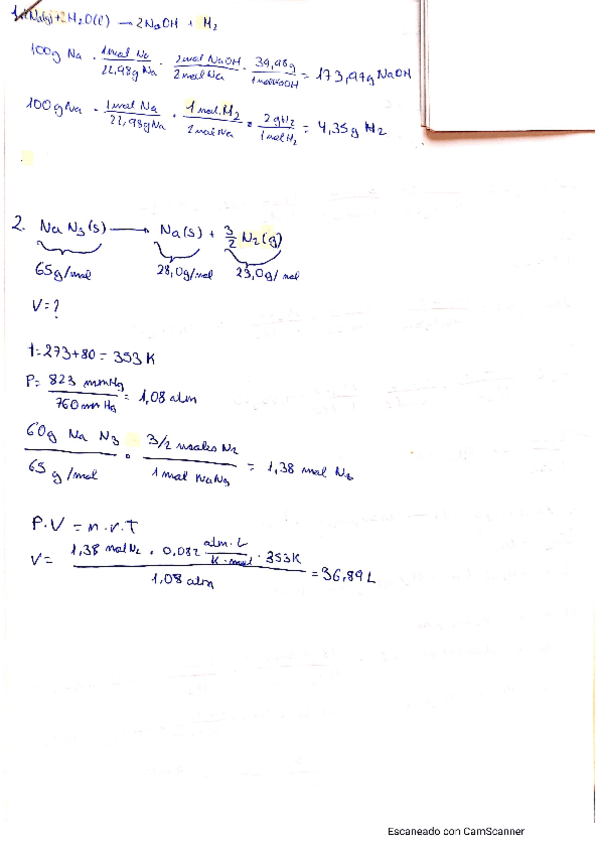 1. 2Na(s) + 2H₂O(l) → 2NaOH + H₂
100g Na · 1 mol Na / 22,98g Na · 2 mol NaOH / 2 mol Na · 39,98g / 1 mol NaOH = 173,97g NaOH
100g Na · 1 mol Na / 22,98g Na · 1 mol H₂ / 2 mol Na · 2 g H₂ / 1 mol H₂ = 4,35g H₂
2. Na N₃(s) → Na(s) + 3/2 N₂(g)
65g/mol 28,0g/mol 23,0g/mol
V = ?
t = 273 + 80 = 353 K
P = 823 mmHg / 760 mm Hg = 1,08 atm
60g Na N₃ / 65 g/mol · 3/2 moles N₂ / 1 mol NaN₃ = 1,38 mol N₂
P.V = n.r.T
V = 1,38 mol N₂ . 0,082 atm.L / K.mol . 353K / 1,08 atm = 36,89 L
Escaneado con CamScanner